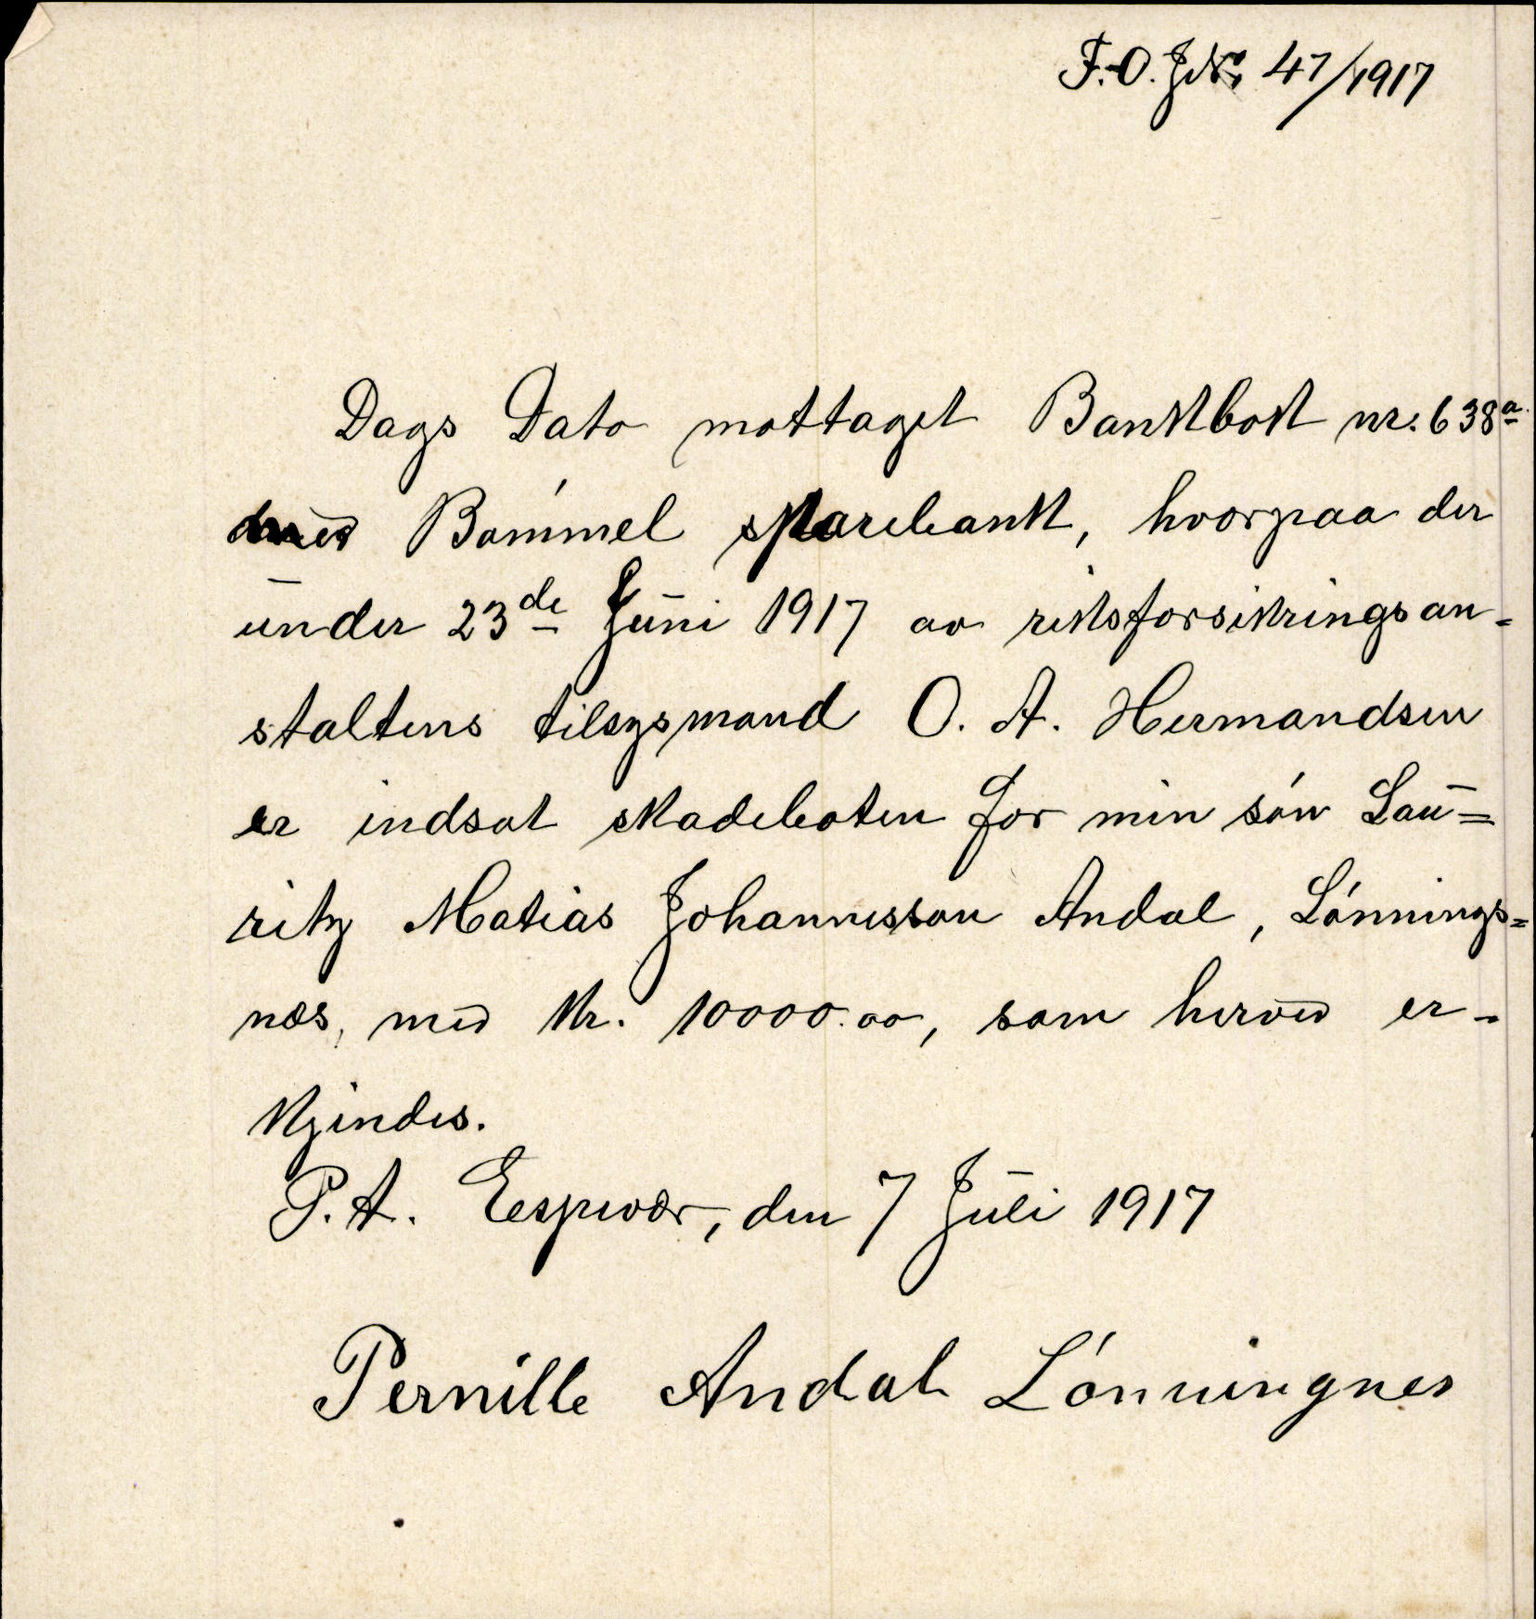 F.O. JNr. 47/1917
Dags Dato mottaget Bankbok nr. 638a
med Bømmel sparebank, hvorpaa der
under 23de Juni 1917 av riksforsikringsan-
staltens tilsysmand O. A. Hermandsen
er indsat skadeboten for min søn Lau=
ritz Matias Johannesson Andal, Lønnings=
næs, med Kr. 10000.00, som herved er-
kjendes.
P.A. Espevær, den 7 Juli 1917
Pernille Andal Lønningnes